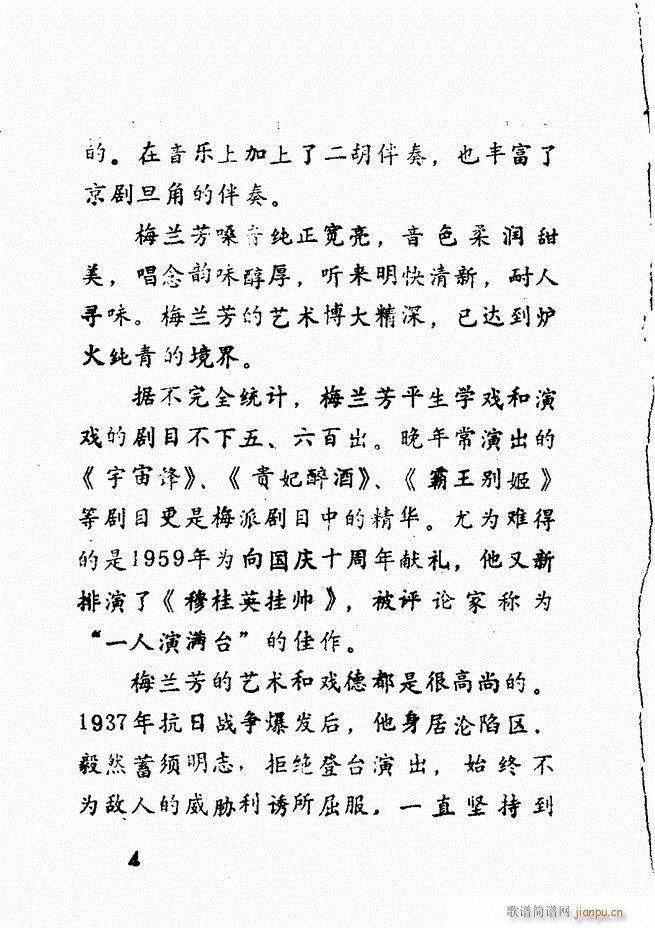 的。在音乐上加上了二胡伴奏，也丰富了
京剧旦角的伴奏。
梅兰芳嗓音纯正宽亮，音色柔润甜
美，唱念韵味醇厚，听来明快清新，耐人
寻味。梅兰芳的艺术博大精深，已达到炉
火纯青的境界。
据不完全统计，梅兰芳平生学戏和演
戏的剧目不下五、六百出。晚年常演出的
《宇宙锋》、《贵妃醉酒》、《霸王别姬》
等剧目更是梅派剧目中的精华。尤为难得
的是1959年为向国庆十周年献礼，他又新
排演了《穆桂英挂帅》，被评论家称为
“一人演满台”的佳作。
梅兰芳的艺术和戏德都是很高尚的。
1937年抗日战争爆发后，他身居沦陷区，
毅然蓄须明志，拒绝登台演出，始终不
为敌人的威胁利诱所屈服，一直坚持到
4
歌谱简谱网
jianpu.cn